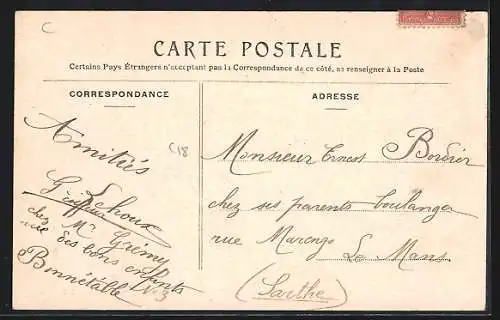 C
CARTE POSTALE
Certains Pays Étrangers n'acceptant pas la Correspondance de ce côté, se renseigner à la Poste
CORRESPONDANCE
ADRESSE
Amitiés
C18
G Lehoux
coiffeur
chez Mr Grémy
rue des bons enfants
No 3
Bonnétable
Monsieur Ernest Bordier
chez ses parents boulanger
rue Marengo
Le Mans
(Sarthe)